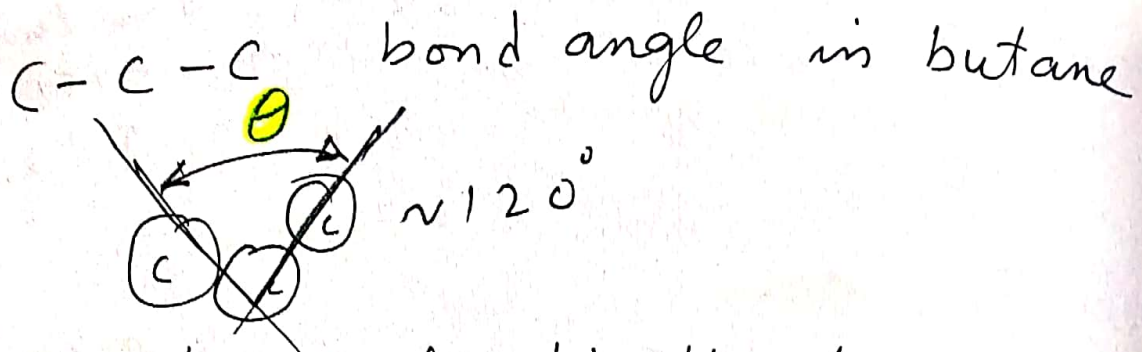 C - C - C bond angle in butane
θ
~120°
C C C